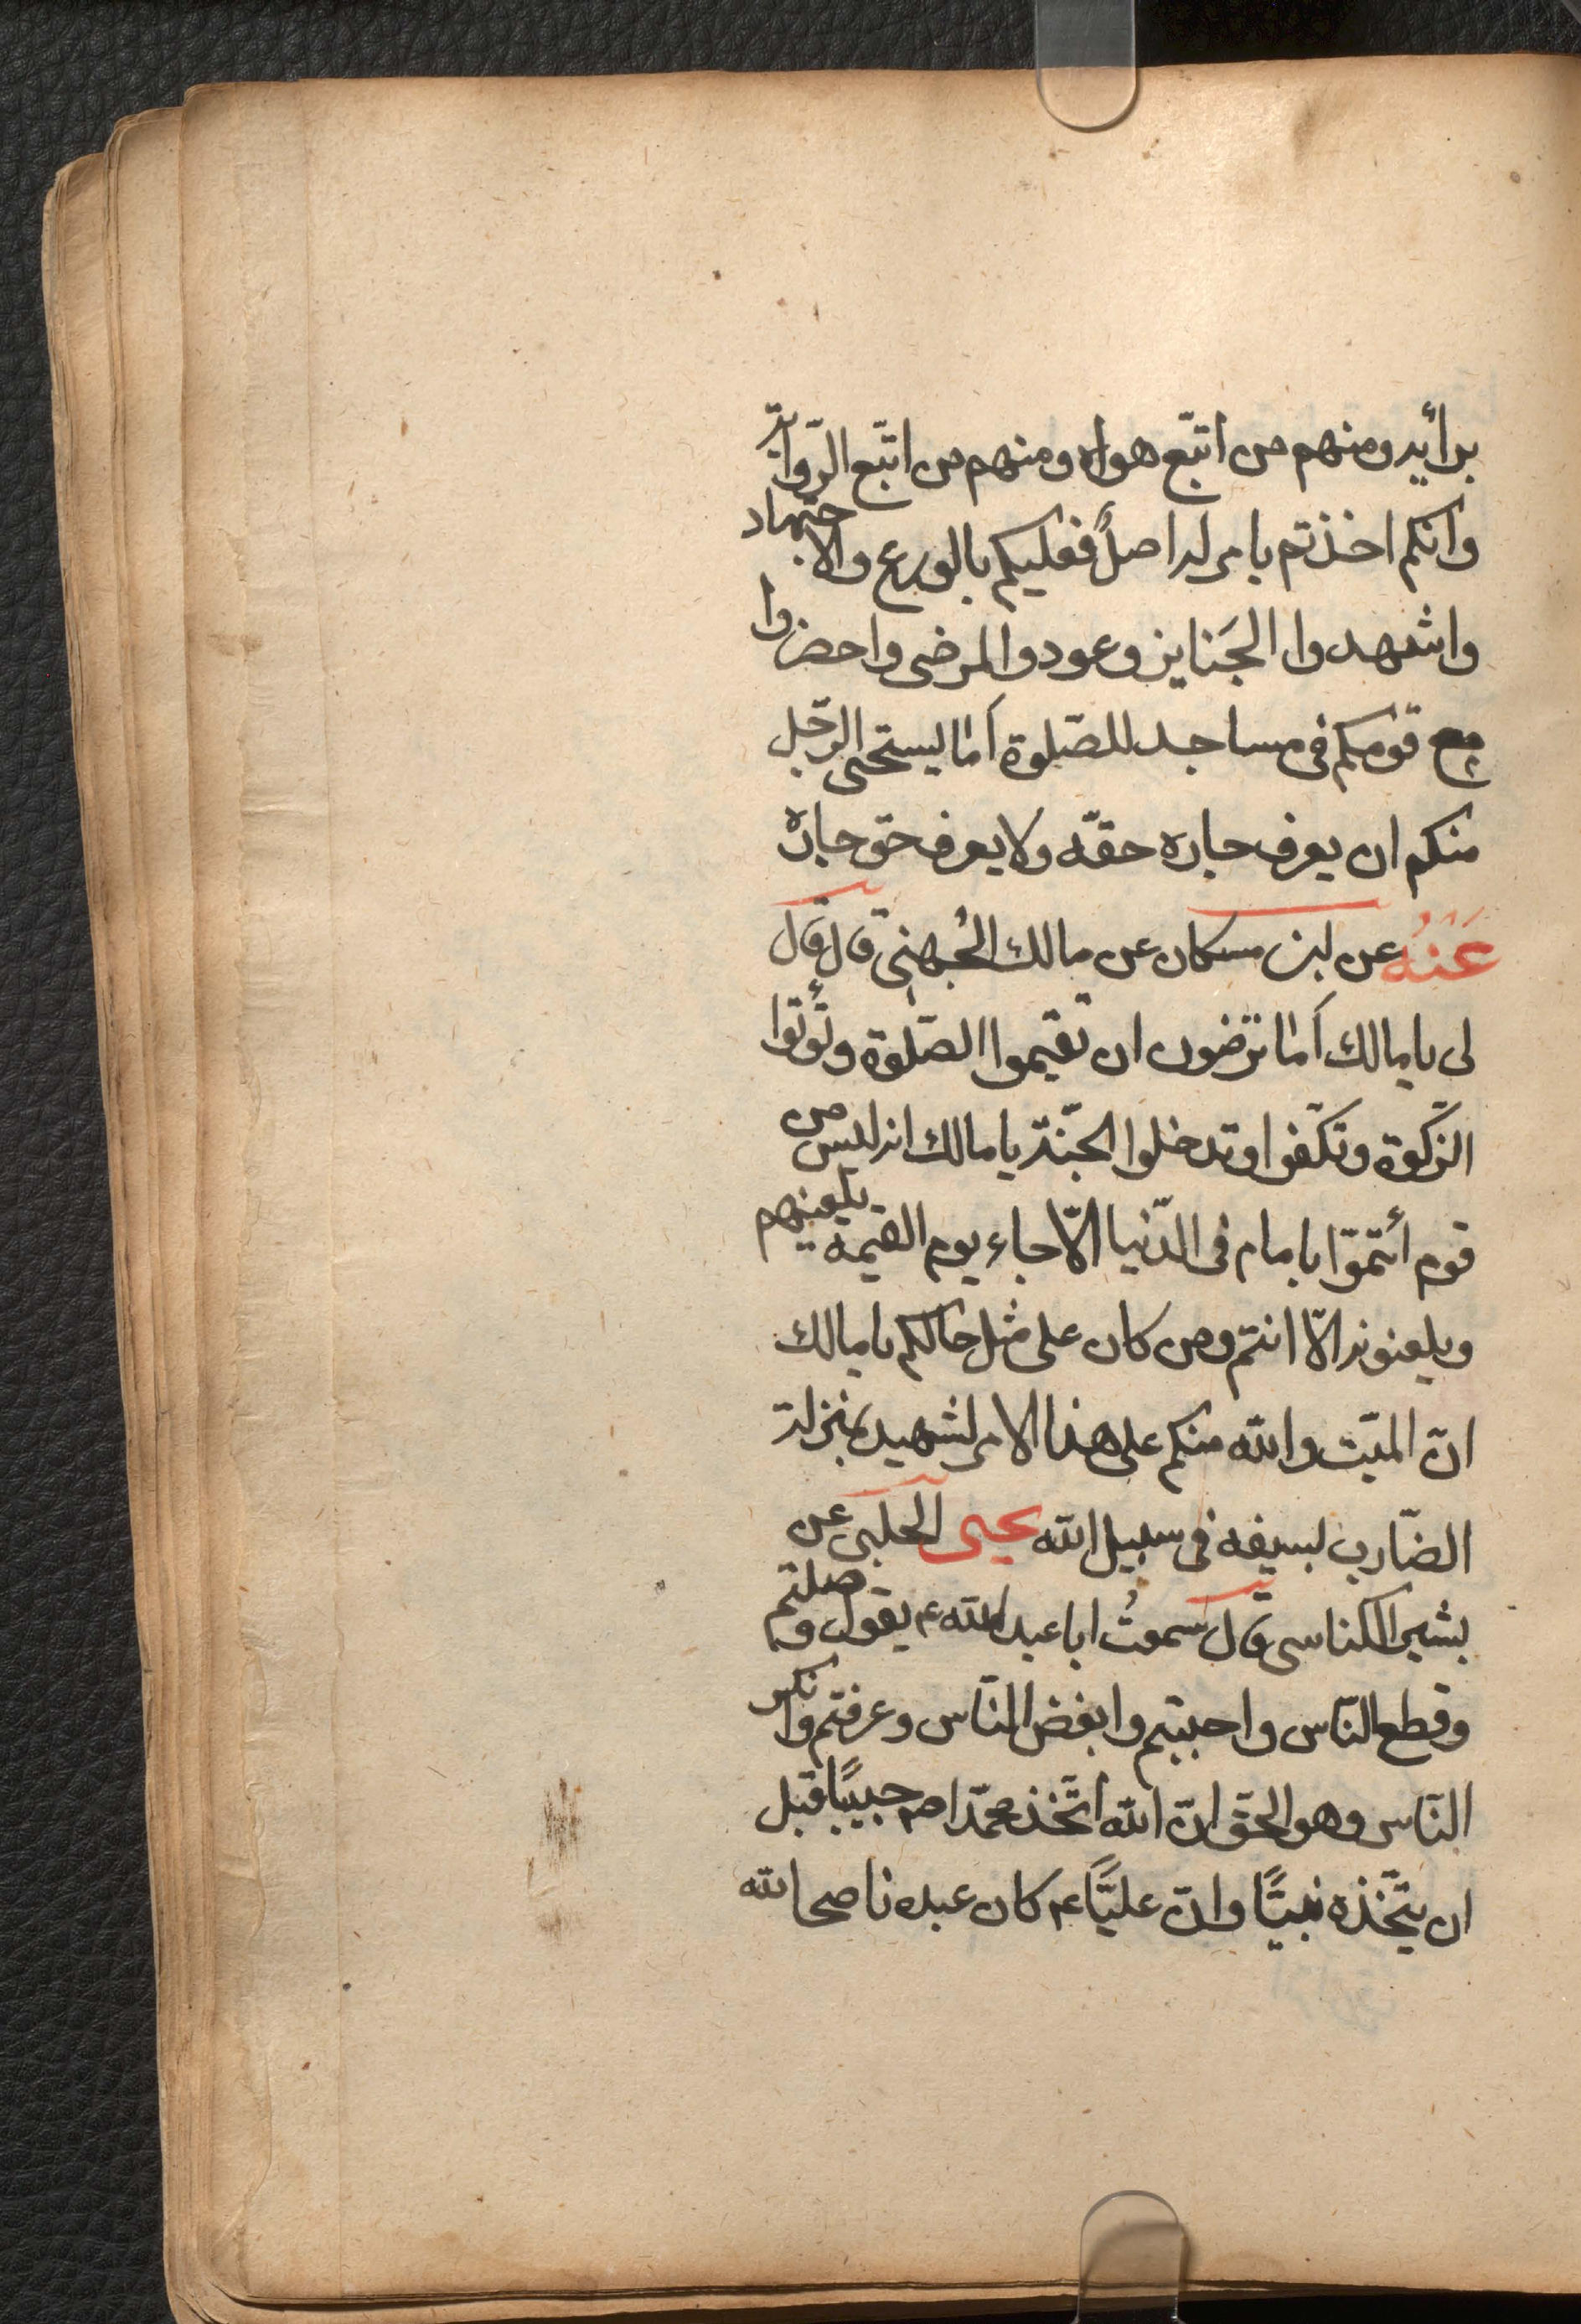 برأيه ومنهم من اتبّع هواه ومنهم من اتبّع الرّواية
وانكم اخذتم بامر له اصلٌ فعليكم بالورع والاجتهاد
واشهدوا الجَنايز وعودوا المرضى واحضروا
مع قومكم فى مساجد للصّلوة اَمَا ليستحى الرّجل
منكم ان يعرف جاره حقّه ولا يعرف حق جاره
عَنْهُ عن ابن مسكان عن مالك الجُهنى قال قال
لى يا مالك اَمَا ترضون ان تقيموا الصّلوة وتُؤتوا
الزّكوة وتكفّوا وتدخلوا الجّنة يا مالك انه ليس من
قوم أئتمّوا بامام فى الدّنيا الّا جاء يوم القيمه يلعنهم
ويلعنونه الّا انتم ومن كان على مثل حالكم يا مالك
انّ الميّت والله منكم على هذا الامر لشهيد بمنزلة
الضّارب بسيفه فى سبيل الله يحيى الحلبى عن
بشير الكناسى قال سمعتُ ابا عبد الله ع يقول وصلتم
وقطع النّاس واحببتم وابغض النّاس وعرفتم وانكر
النّاس وهو الحق انّ الله اتّخذ محمّدا ص حبيبًا قبل
ان يتّخذه نبيًّا وانّ عليًّا ع كان عبده ناصحا لله